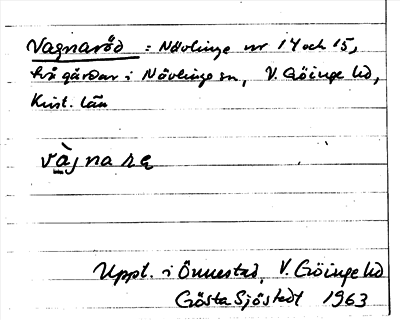 Vagnaröd : Nävlinge nr 14 och 15,
två gårdar i Nävlinge sn, V. Göinge hd,
Krist. län
vàjnarə
Uppt. i Önnestad, V. Göinge hd
Gösta Sjöstedt 1963